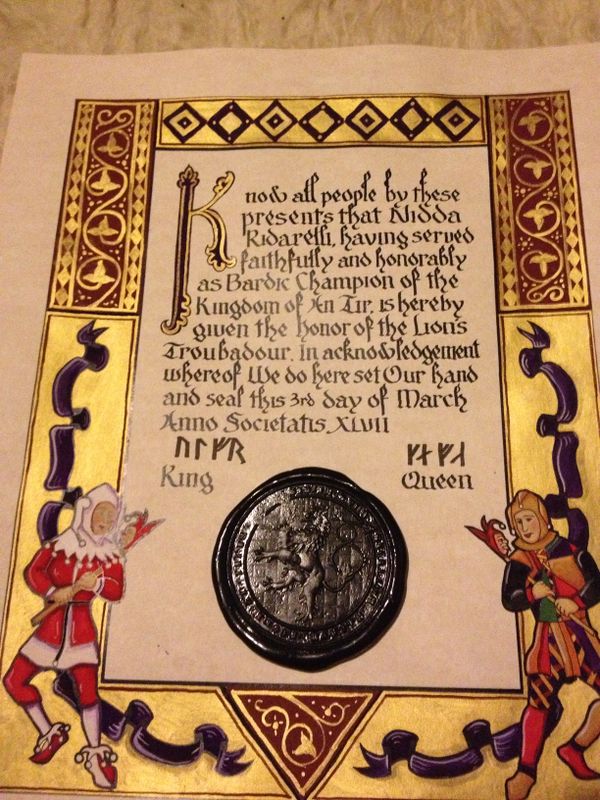 Know all people by these
presents that Nidda
Ridarelli, having served
faithfully and honorably
as Bardic Champion of the
Kingdom of An Tir, is hereby
given the honor of the Lion's
Troubadour. In acknowledgement
whereof We do here set Our hand
and seal this 3rd day of March
Anno Societatis XLVII
ᚢᛚᚠᚱ
King Queen